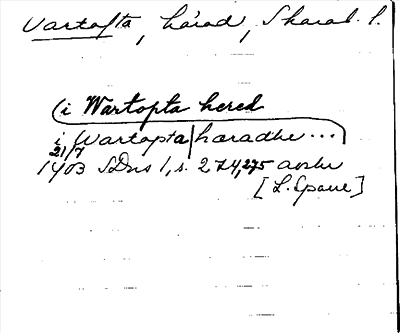 Vartofta, härad, Skarab. l.
(i Wartopta hered
i Wartopta|haradhe ...
21/7
1403 SDns 1, s. 274, 275 avskr
[L. Spåre]